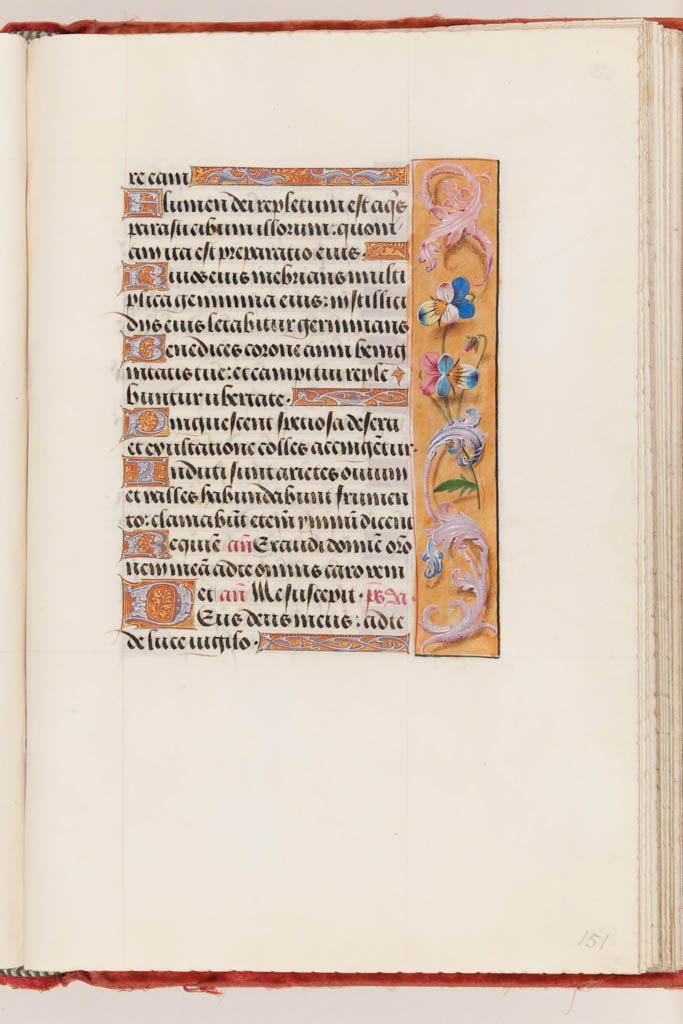 re eam
Flumen dei repletum est aq̄s
parasti cibum illorum: quoni
am ita est preparatio eius.
Riuos eius inebrians multi
plica genimina eius: in stillici
diis eius letabitur germinans
Benedices corone anni benig
nitatis tue: et campi tui reple
buntur ubertate.
Pinguescent speciosa deserti
et exultatione colles accingētur.
Induti sunt arietes ouium
et valles habundabunt frumen
to: clamabūt etem̄ ymnū dicent
Requiē an̄ Exaudi domine oro
nem meā ad te omnis caro veni
et an̄ Me suscepit. ps Da
Deus deus meus: ad te
de luce vigilo.
151